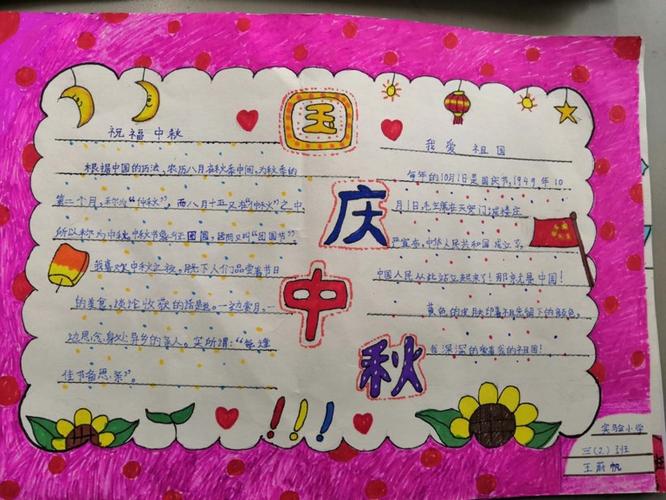 国
庆
中
秋
祝福中秋
根据中国的历法，农历八月在秋季中间，为秋季的
第二个月，称为“仲秋”，而八月十五又在“仲秋”之中
所以称为中秋。中秋节
圆，因而又叫“团圆节”
我喜欢中秋之夜。月下人们品尝着节日
的美食，谈论收获的话题。一边赏月，
边思念身处异乡的亲人。实所谓：“每逢
佳节倍思亲”。
我爱祖国
每年的10月1日是国庆节，1949年10
月1日，毛主席在天安门城楼庄
严宣布，中华人民共和国成立了。
中国人民从此站立起来了！那就是中国！
黄色的皮肤印着不可磨灭的颜色。
我深深的爱着我的祖国！
实验小学
三（2）班
王蔚帆